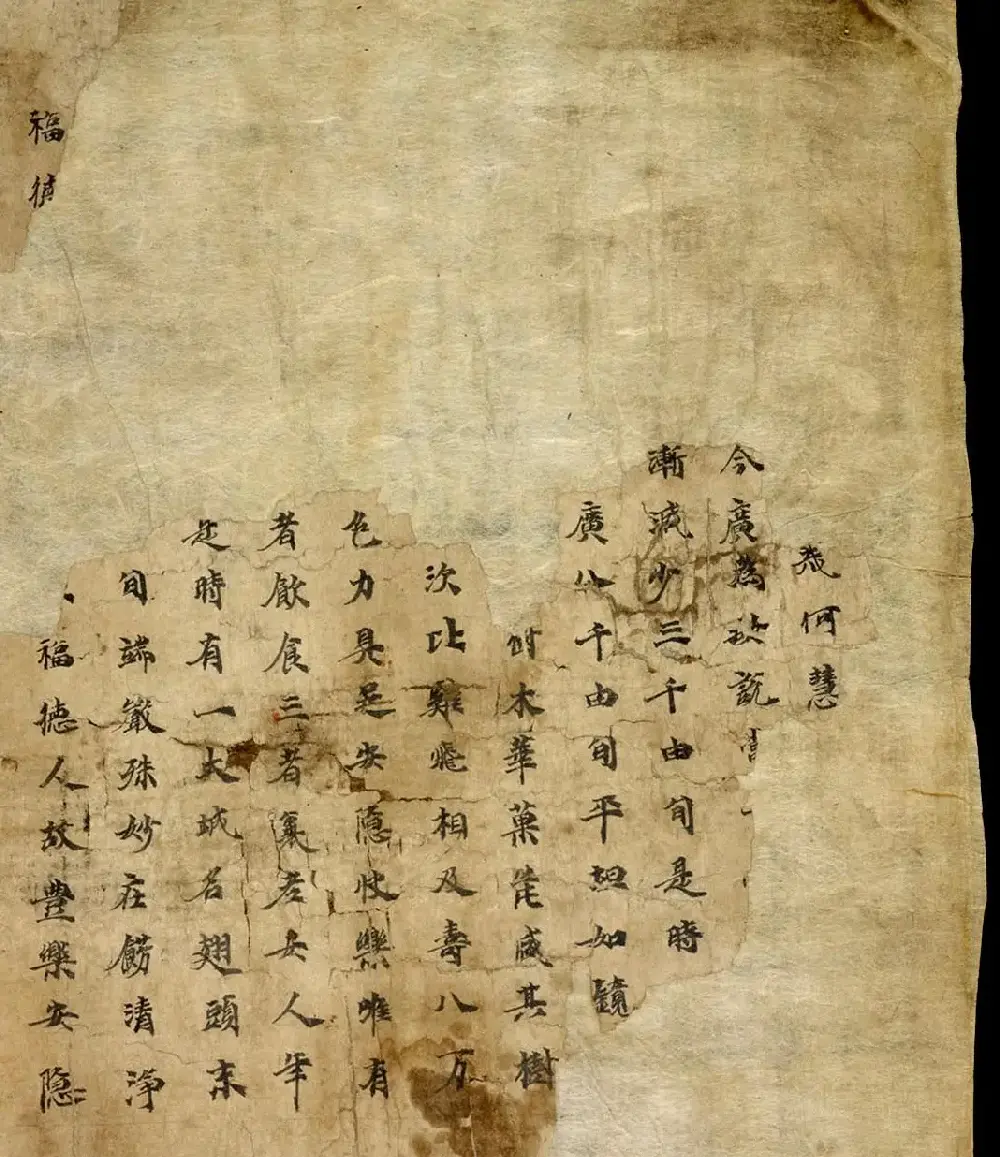 戒何慧
今廣為汝說
漸減少三千由旬是時
廣八千由旬平坦如鏡
木華菓茂盛其樹
次比雞飛相及壽八万
色力具足安隱快樂唯有
者飲食三者衰老女人年
是時有一大城名翅頭末
旬端嚴殊妙庄餝清淨
福德福德人故豐樂安隱